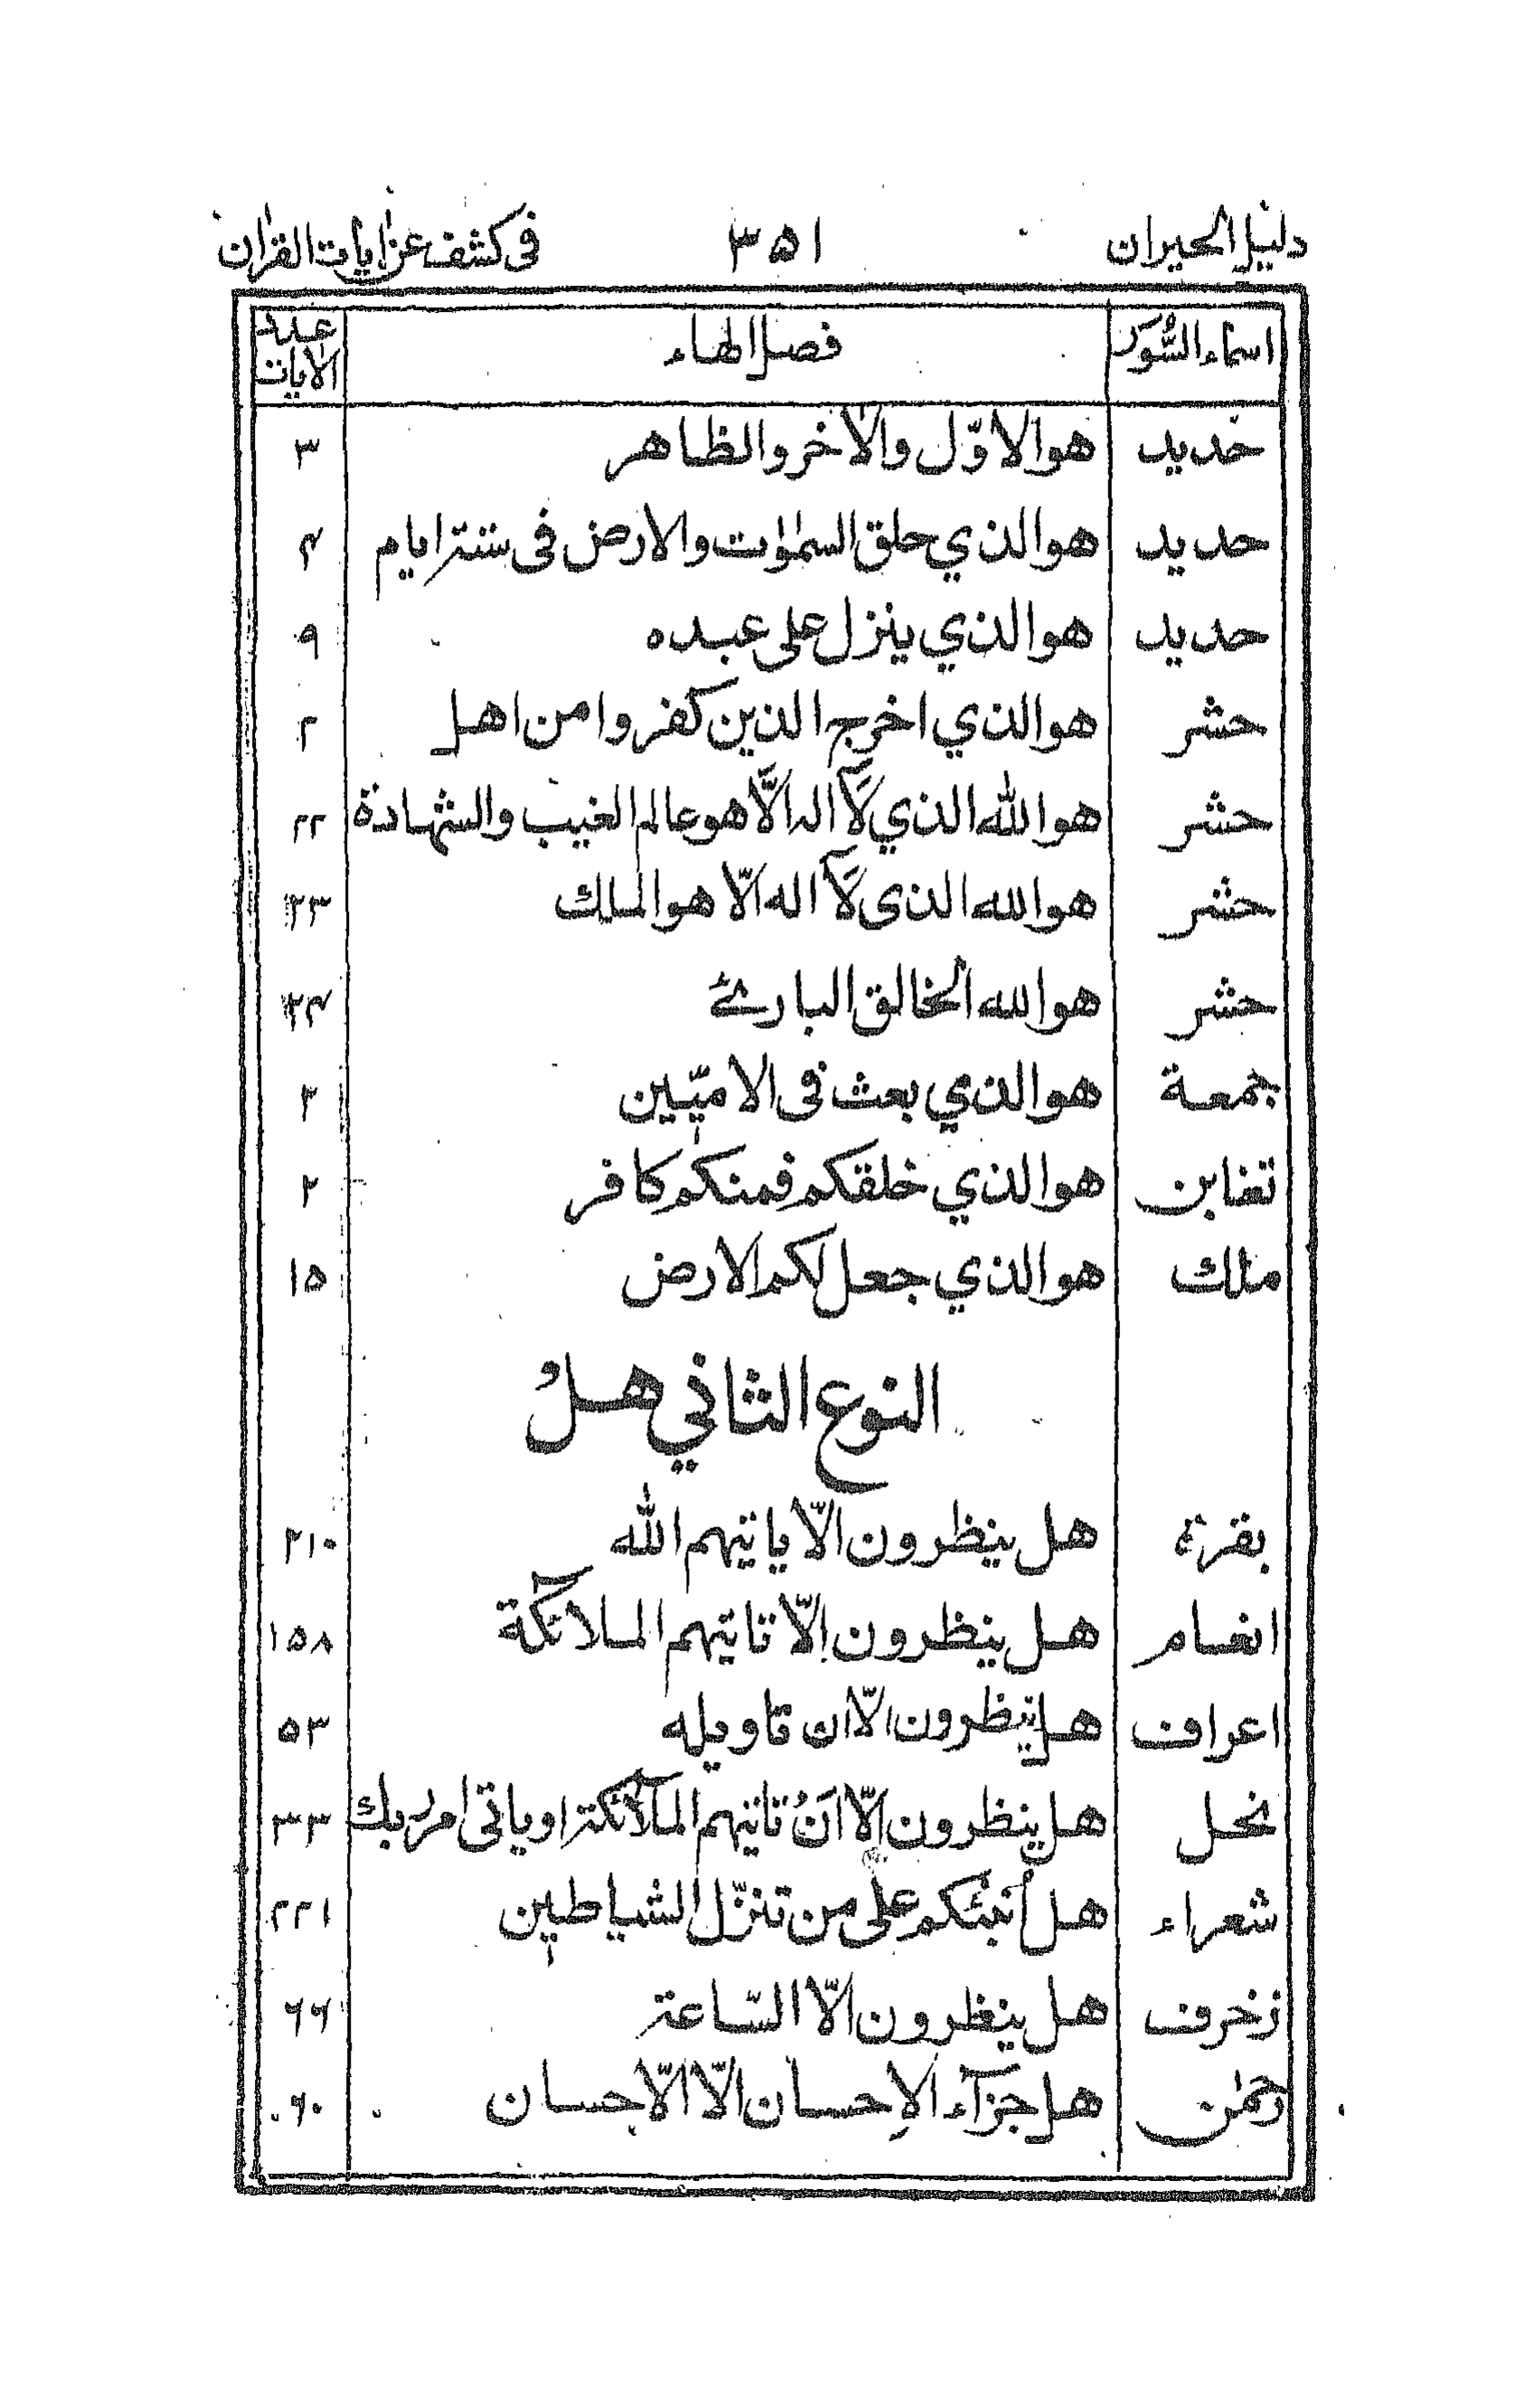 دليل الحيران ٣٥١ فى كشف عن اٰيات القراٰن
اسماء السُّور فصل الهاء عدد الاٰيات
حديد هو الاوّل والاٰخر والظاهر ٣
حديد هو الذي خلق السمٰوٰت والارض فى ستة ايام ٤
حديد هو الذي ينزل على عبده ٩
حشر هو الذي اخرج الذين كفروا من اهل ٢
حشر هو الله الذي لَآ اله الّا هو عالم الغيب والشهادة ٢٢
حشر هو الله الذى لَآ اله الّا هو الملك ٢٣
حشر هو الله الخالق البارئ ٢٤
جمعة هو الذي بعث فى الاميّين ٢
تغابن هو الذي خلقكم فمنكم كافر ٢
ملك هو الذي جعل لكم الارض ١٥
النوع الثاني هل
بقرة هل ينظرون الّا ياتيهم الله ٢١٠
انعام هل ينظرون الّا تاتيهم الملآئكة ١٥٨
اعراف هل ينظرون الّا ان تاويله ٥٣
نحل هل ينظرون الّا انْ تاتيهم الملآئكة او ياتى امر ربك ٣٣
شعراء هل أنبئكم على من تنزّل الشياطين ٢٢١
زخرف هل ينظرون الّا السّاعة ٦٦
رحمٰن هل جزآء الاِحسان الّا الاحسان ٦٠